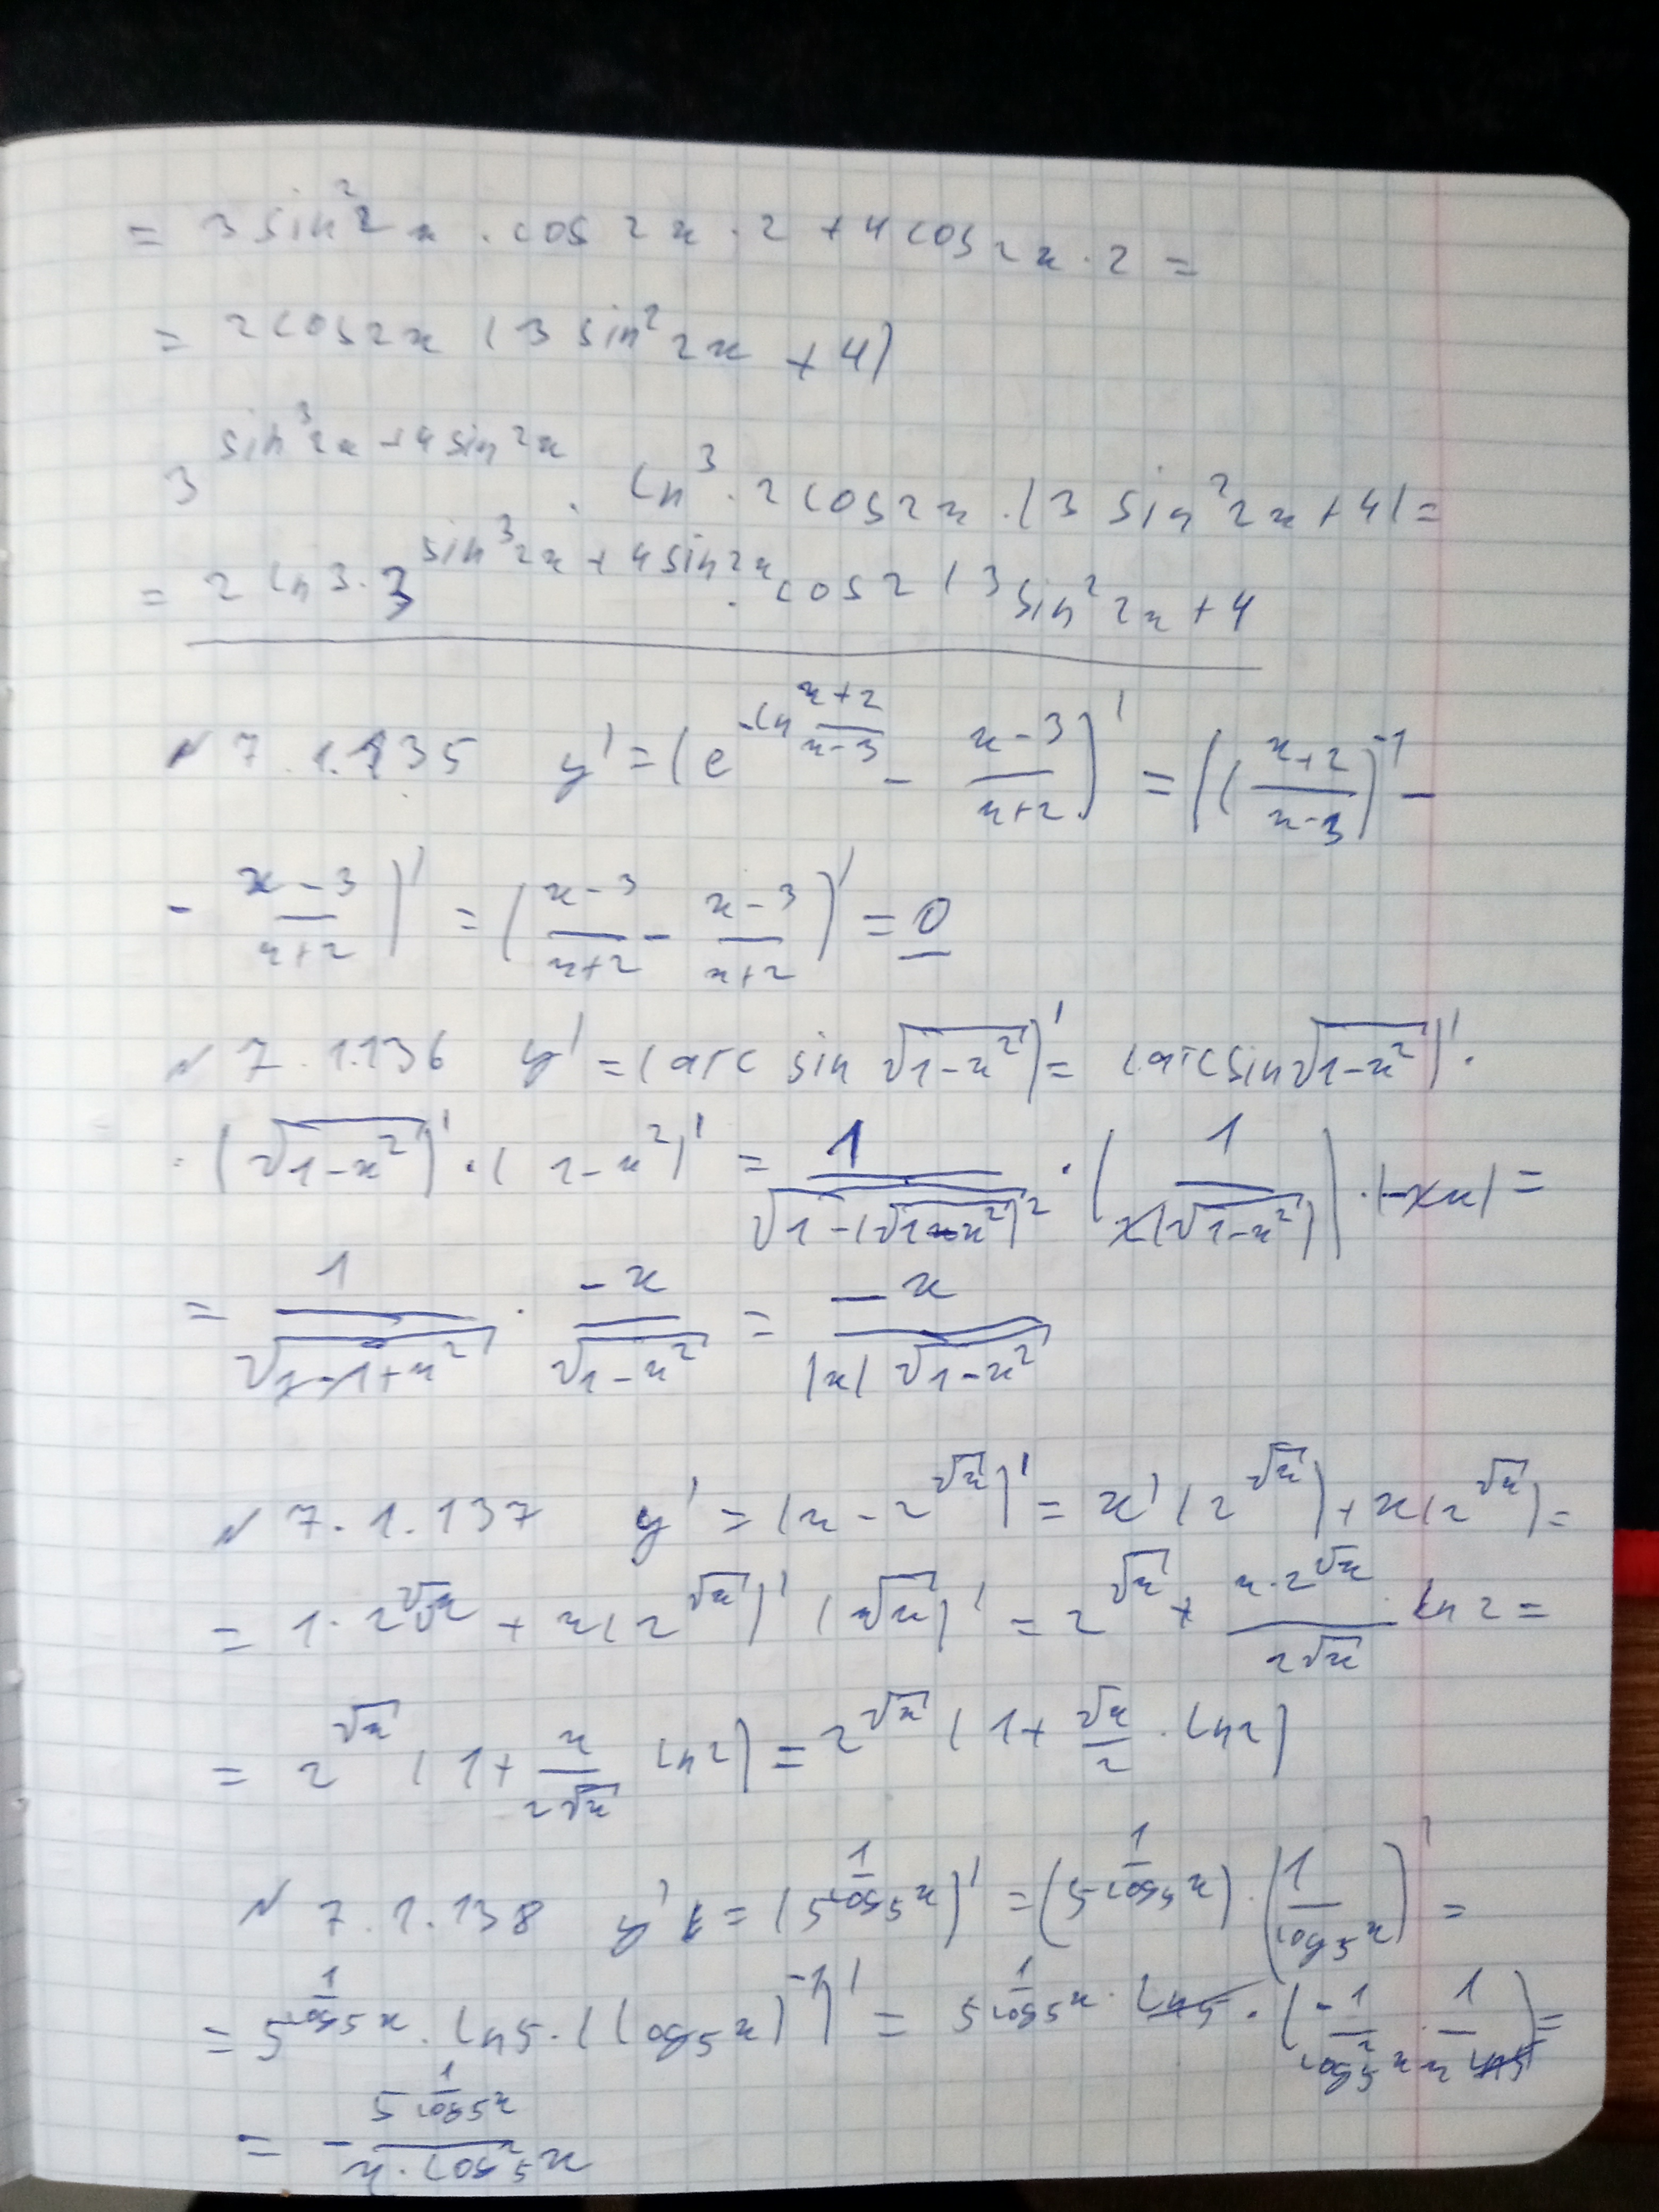 = 3 sin²2x · cos 2x · 2 + 4 cos 2x · 2 =
= 2 cos 2x (3 sin² 2x + 4)
3^(sin³2x + 4 sin 2x) · ln 3 · 2 cos 2x · (3 sin² 2x + 4) =
= 2 ln 3 · 3^(sin³2x + 4 sin 2x) · cos 2 (3 sin² 2x + 4
N 7.1.135 y' = (e^(-ln (x+2)/(x-3)) - (x-3)/(x+2))' = (((x+2)/(x-3))^-1 -
- (x-3)/(x+2))' = ((x-3)/(x+2) - (x-3)/(x+2))' = 0
N 7.1.136 y' = (arc sin √(1-x²))' = (arcsin √(1-x²))' ·
· (√(1-x²))' · (1-x²)' = 1/√(1-(√(1-x²))²) · (1/(2(√(1-x²)))) · (-2x) =
= 1/√(1-1+x²) · -x/√(1-x²) = -x/(|x| √(1-x²))
N 7.1.137 y' = (x - 2^√x)' = x' (2^√x) + x(2^√x) =
= 1 · 2^√x + x(2^√x)' (√x)' = 2^√x + (x · 2^√x)/(2√x) ln 2 =
= 2^√x (1 + x/(2√x) ln 2) = 2^√x (1 + √x/2 · ln 2)
N 7.1.138 y' = (5^(1/log₅x))' = (5^(1/log₅x)) · (1/log₅x)' =
= 5^(1/log₅x) · ln 5 · ((log₅x)^-1)' = 5^(1/log₅x) · ln 5 · (-1/log₅²x · 1/(x ln 5)) =
= - 5^(1/log₅x)/(x · log₅²x)